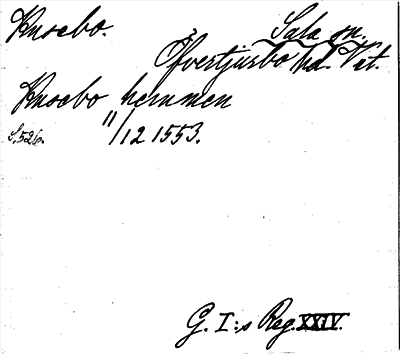 Knsebo. Sala sn.
Öfvertjurbo hd. Vät.
Knsebo hemmen
S. 526. 11/12 1553.
G. I:s Reg. XXIV.